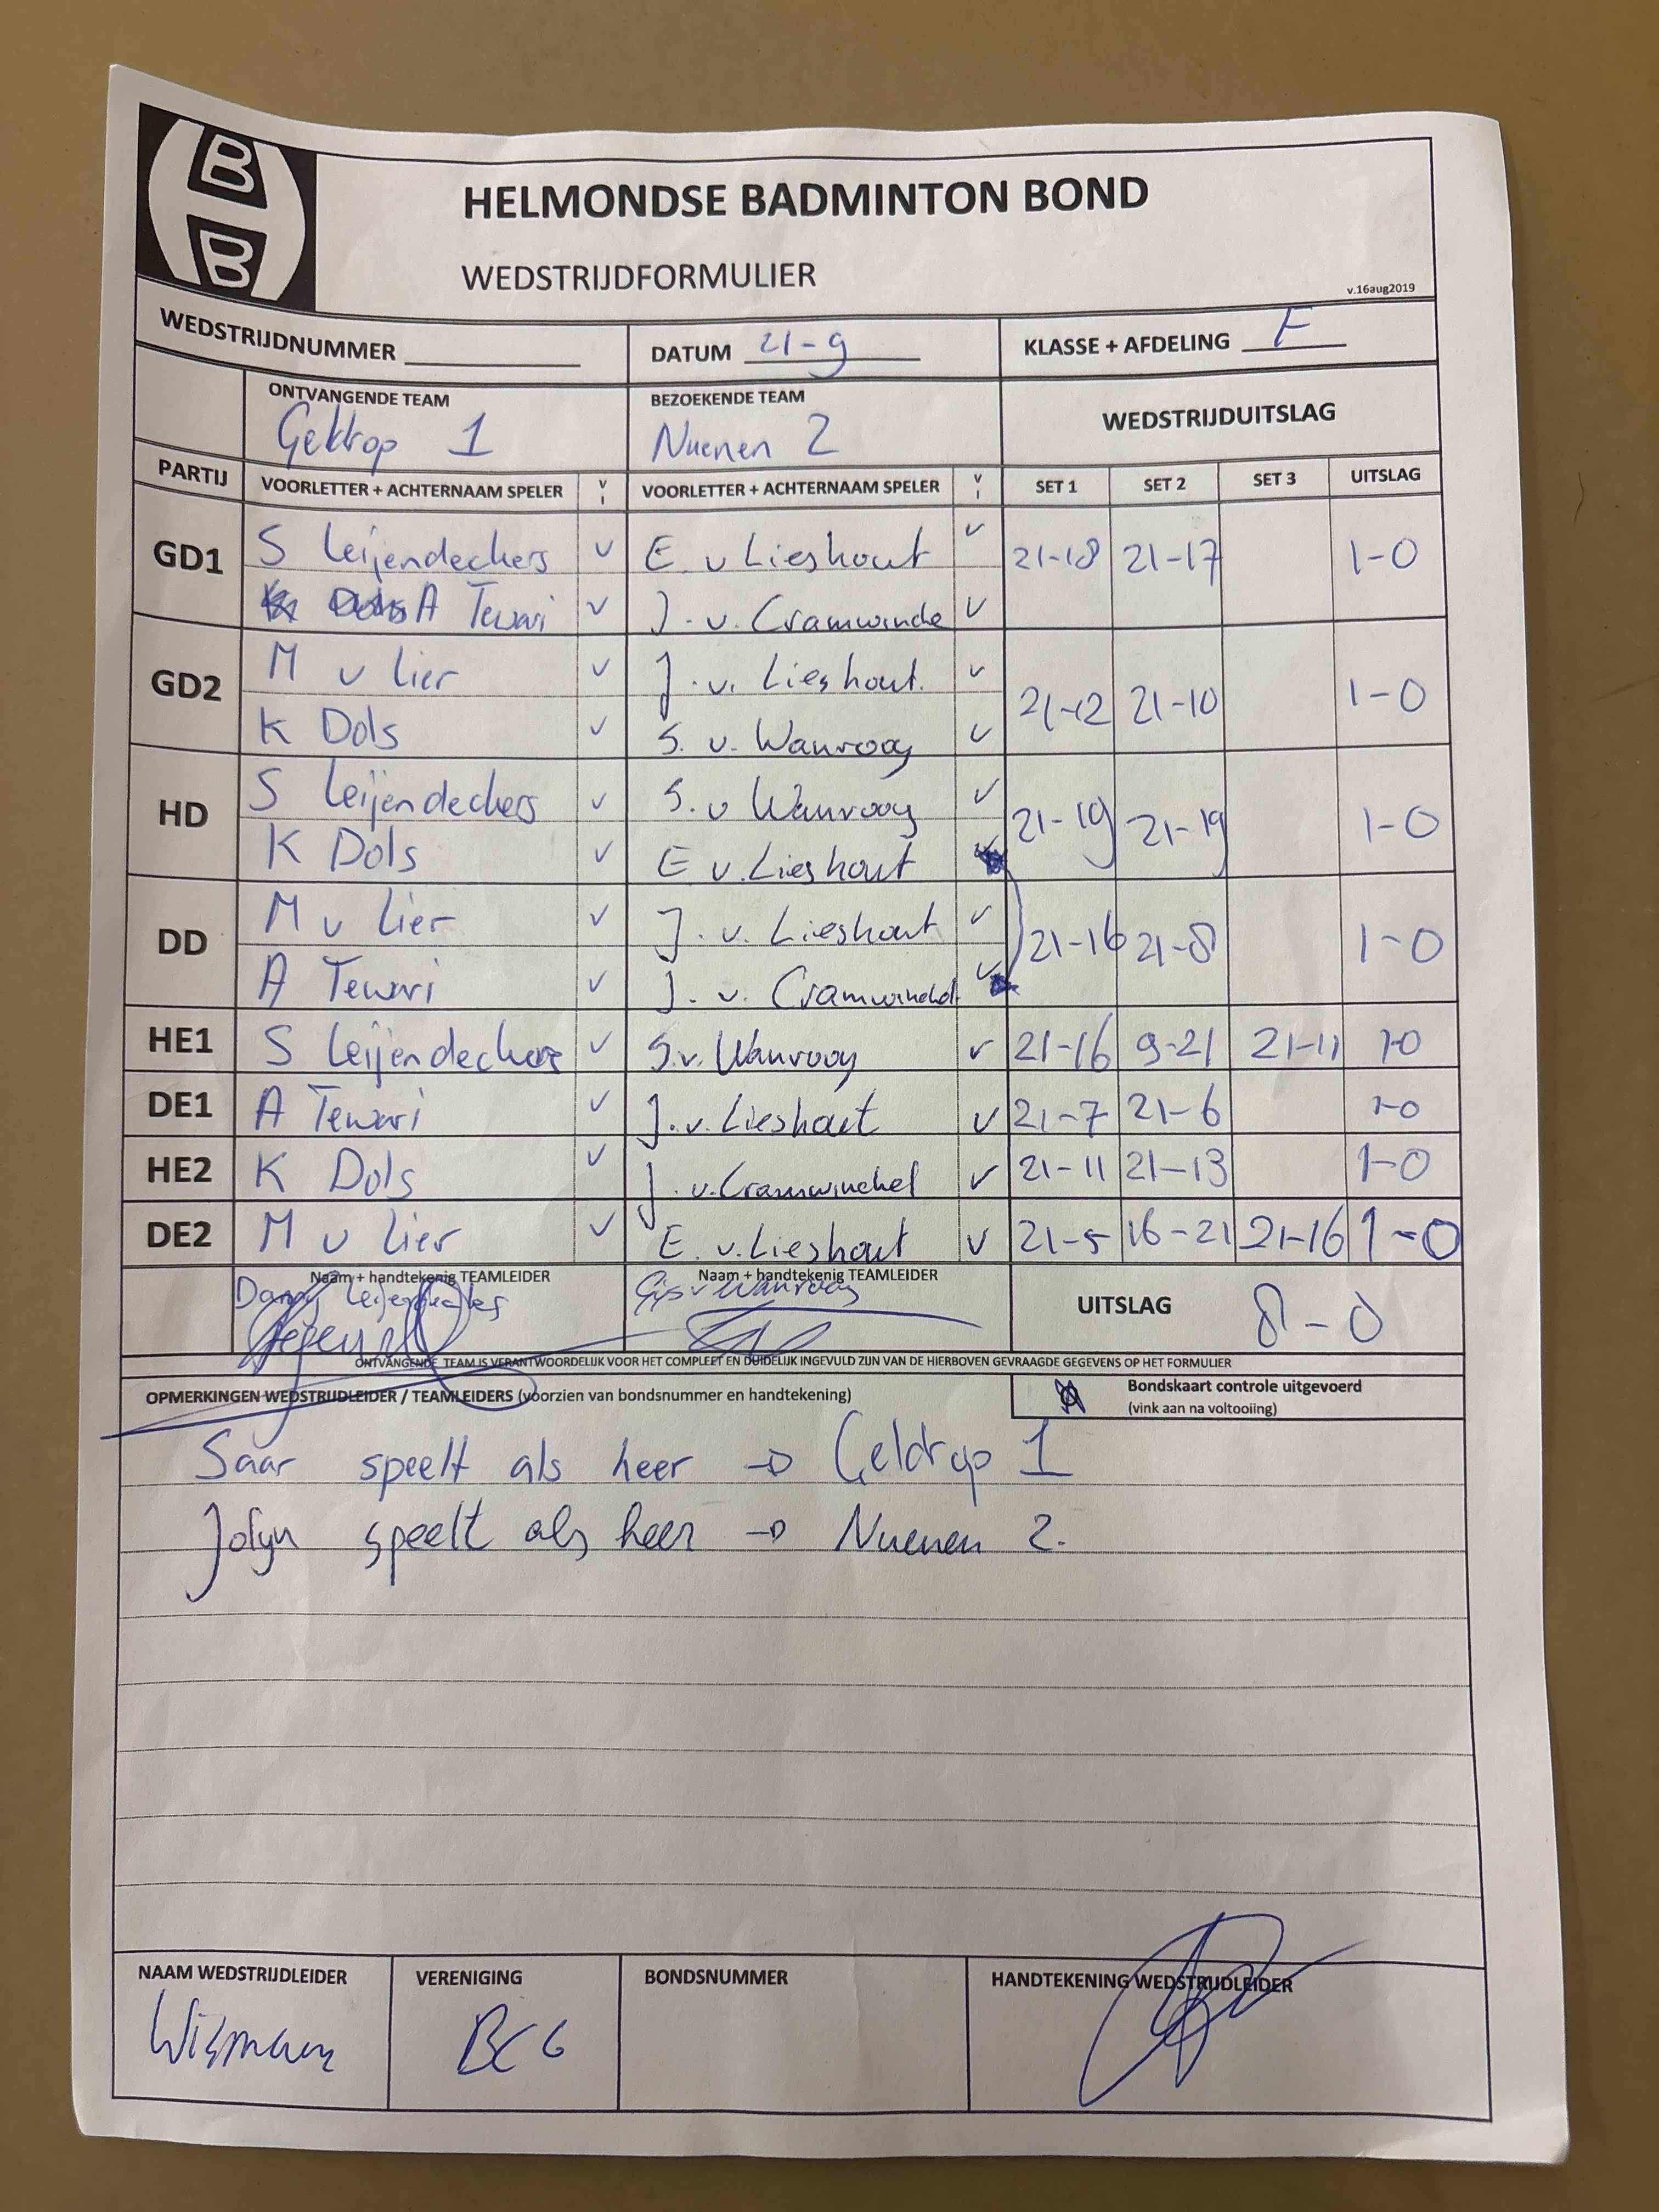 B
B
HELMONDSE BADMINTON BOND
WEDSTRIJDFORMULIER
v.16aug2019
WEDSTRIJDNUMMER
DATUM 21-9
KLASSE + AFDELING F
ONTVANGENDE TEAM
Geldrop 1
BEZOEKENDE TEAM
Nuenen 2
WEDSTRIJDUITSLAG
PARTIJ VOORLETTER + ACHTERNAAM SPELER V I VOORLETTER + ACHTERNAAM SPELER V I SET 1 SET 2 SET 3 UITSLAG
GD1 S Leijendeckers v E. v Lieshout v 21-18 21-17 1-0
A Tewari v J. v. Cramwinckel v
GD2 M v Lier v J. v. Lieshout. v 21-12 21-10 1-0
K Dols v S. v. Wanrooy v
HD S Leijendeckers v S. v Wanrooy v 21-19 21-19 1-0
K Dols v E v. Lieshout
DD M v Lier v J. v. Lieshout v 21-16 21-8 1-0
A Tewari v J. v. Cramwinckel v
HE1 S Leijendeckers v S. v. Wanrooy v 21-16 9-21 21-11 1-0
DE1 A Tewari v J. v. Lieshout v 21-7 21-6 1-0
HE2 K Dols v J. v. Cramwinckel v 21-11 21-13 1-0
DE2 M v Lier v E. v. Lieshout v 21-5 16-21 21-16 1-0
Naam + handtekenig TEAMLEIDER
Naam + handtekenig TEAMLEIDER
Gijs v Wanrooy
UITSLAG 8-0
ONTVANGENDE TEAM IS VERANTWOORDELIJK VOOR HET COMPLEET EN DUIDELIJK INGEVULD ZIJN VAN DE HIERBOVEN GEVRAAGDE GEGEVENS OP HET FORMULIER
OPMERKINGEN WEDSTRIJDLEIDER / TEAMLEIDERS (voorzien van bondsnummer en handtekening)
Bondskaart controle uitgevoerd
(vink aan na voltooiing)
Saar speelt als heer → Geldrop 1
Jolyn speelt als heer → Nuenen 2.
NAAM WEDSTRIJDLEIDER
Wismans
VERENIGING
BCG
BONDSNUMMER
HANDTEKENING WEDSTRIJDLEIDER